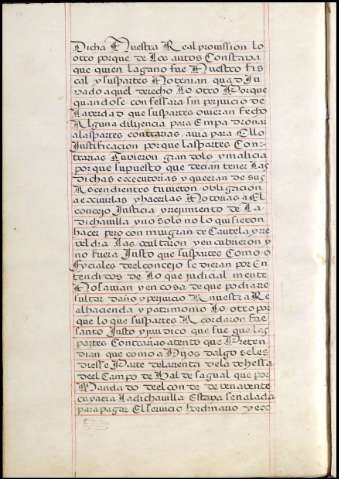 Dicha Nuestra Real provission lo
otro porque de Los autos Constaba
que quien lagano fue Nuestro fis
cal y suspartes Notenian quadJu
vado aquel derecho Lo otro Porque
quandose confessara sin perjuicio de
Laverdad que suspartes Ovieran fecho
Alguna diligencia para Empadronar
alaspartes contrarias avia para Ello
Justificacion por que las partes Con
trarias Tuvieron gran dolo y malicia
porque supuesto que decian tener Las
dichas executorias y queeran de sus
Ascendientes tuvieron obligacion
a exivirlas y hacerlas Notorias a El
concejo Justicia y regimiento de La
dicha villa y no solo no lo quisieron
hacer pero con muigran de Cautela y re
veldia Las ocultaron y encubrieron y
no fuera Justo que suspartes Como o
fyciales del concejo se dieran por En
tendidos de Lo que judicial mente
Nosavian y en cosa de que podia re
sultar daño y perjuicio A nuestra Re
alhacienda y patrimonio Lo otro por
que lo que suspartes Acordaron fue
santo Justo y juridico que fue que las
partes Contrarias atento que Preten
dian que como a Hijos dalgo seles
diesse Parte delarenta dela dehessa
deel Campo de Val de sagual que por
Mandado del conde de benavente
cuya era Ladicha villa Estava senalada
para pagar El servicio hordinario y ese